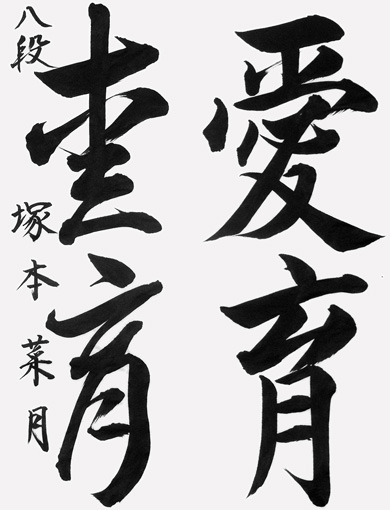 愛育
育
八段 塚本菜月